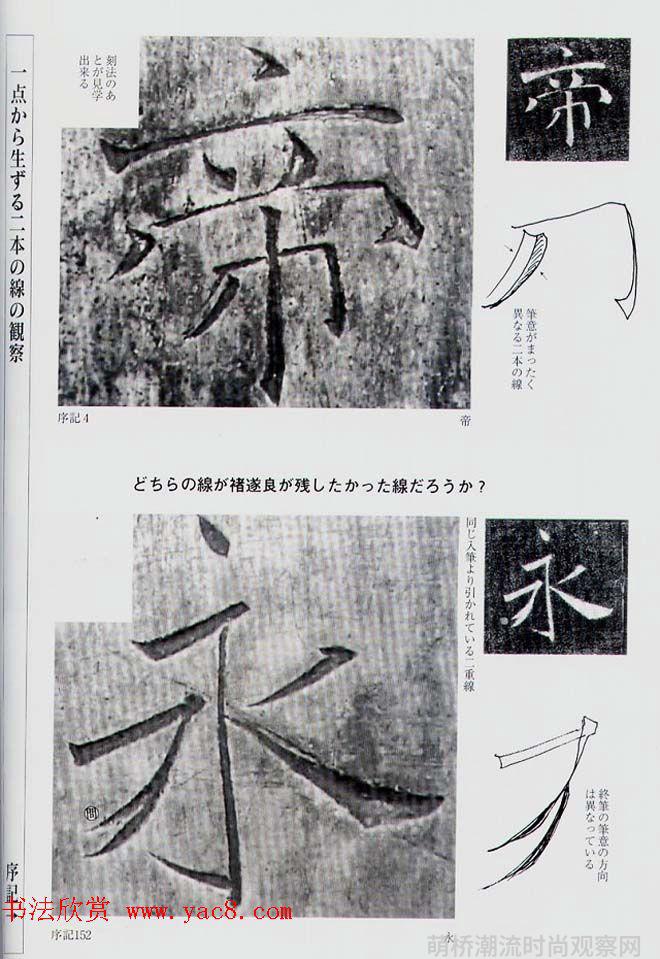 一点から生ずる二本の線の観察
刻法のあ
とが見学
出来る
帝
帝
筆意がまったく
異なる二本の線
序記4
帝
どちらの線が褚遂良が残したかった線だろうか?
同じ入筆より引かれている二重線
永
永
終筆の筆意の方向
は異なっている
序記
书法欣赏 www.yac8.com
序記152
永
萌桥潮流时尚观察网